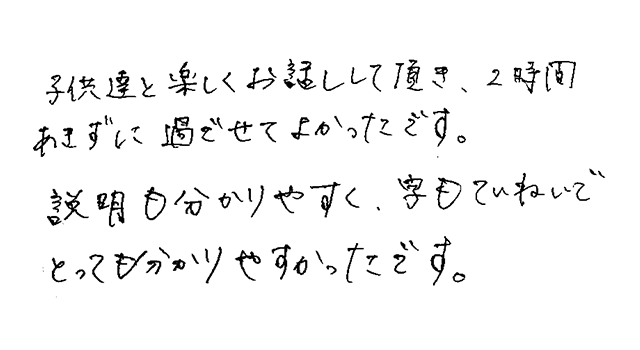 子供達と楽しくお話しして頂き、2時間
あきずに過ごせてよかったです。
説明も分かりやすく、字もていねいで
とっても分かりやすかったです。